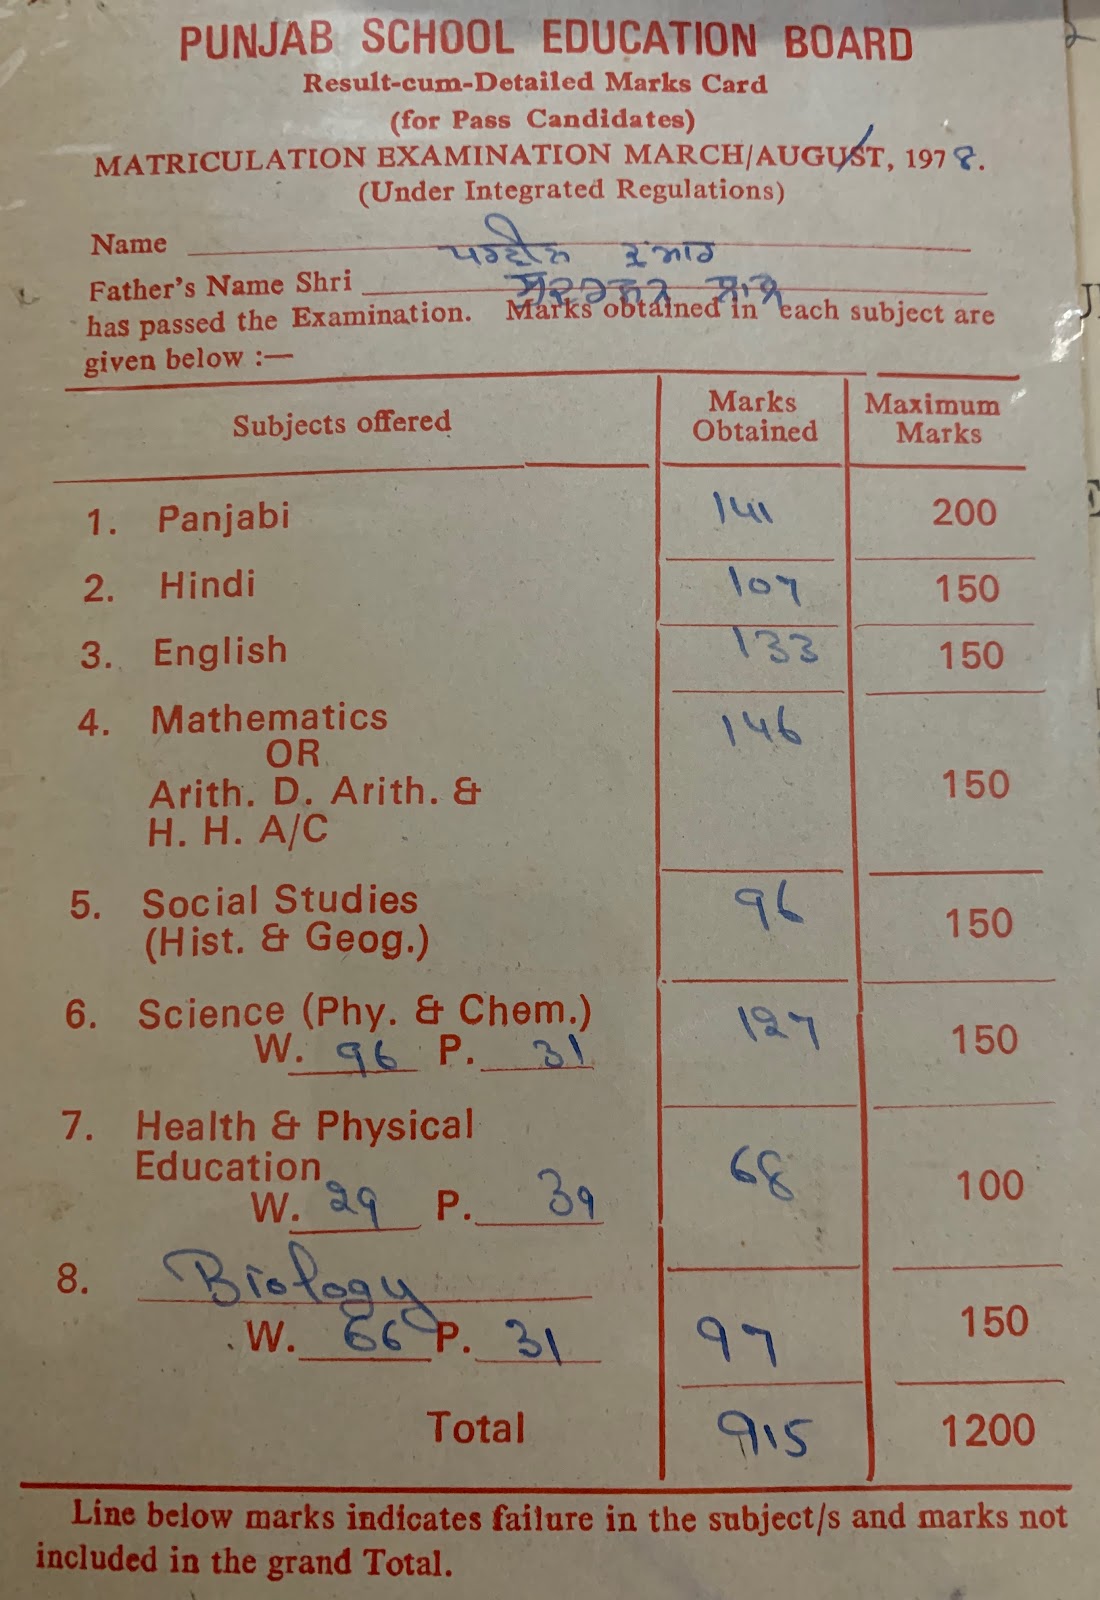 PUNJAB SCHOOL EDUCATION BOARD
Result-cum-Detailed Marks Card
(for Pass Candidates)
MATRICULATION EXAMINATION MARCH/AUGUST, 1978.
(Under Integrated Regulations)
Name ਪਰਵੀਨ ਕੁਮਾਰ
Father's Name Shri
has passed the Examination. Marks obtained in each subject are
given below :—
Subjects offered Marks Obtained Maximum Marks
1. Panjabi 141 200
2. Hindi 107 150
3. English 133 150
4. Mathematics 146
OR
Arith. D. Arith. & 150
H. H. A/C
5. Social Studies 96 150
(Hist. & Geog.)
6. Science (Phy. & Chem.) 127 150
W. 96 P. 31
7. Health & Physical 68 100
Education
W. 29 P. 39
8. Biology 150
W. 66 P. 31 97
Total 915 1200
Line below marks indicates failure in the subject/s and marks not
included in the grand Total.